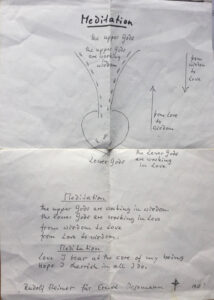 Meditation
the upper Gods
the upper Gods
are working
in
wisdom
from
wisdom
to
love
from love
to
wisdom
Lower Gods
the lower Gods
are working
in love.
Meditation
the upper Gods are working in wisdom
the lower Gods are working in love
from wisdom to love
from love to wisdom.
Meditation
Love I bear at the core of my being
Hope I cherish in all I do.
Rudolf Steiner für